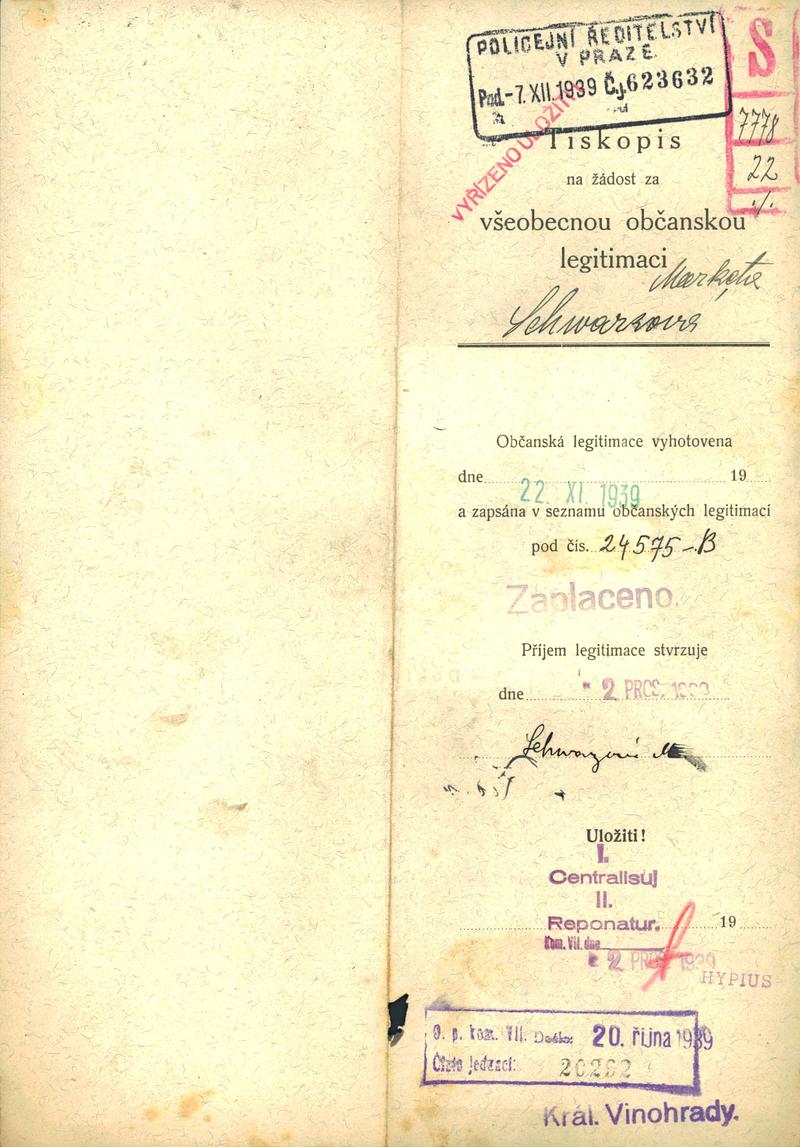 POLICEJNÍ ŘEDITELSTVÍ
V PRAZE
Pod. -7. XII. 1939 Čj. 623632
S
7778
22
VYŘÍZENO ULOŽIT
Tiskopis
na žádost za
všeobecnou občanskou
legitimaci
Schwarzová
Občanská legitimace vyhotovena
dne 22. XI. 1939 19
a zapsána v seznamu občanských legitimací
pod čís. 24575-B
Zaplaceno.
Příjem legitimace stvrzuje
dne 2 PROS. 1939
Uložiti!
I.
Centralisuj
II.
Reponatur. 19
Kom. VII. dne
2 PROS. 1939
HYPIUS
kom. VII. Došlo: 20. října 1939
Číslo jednací: 20292
Král. Vinohrady.